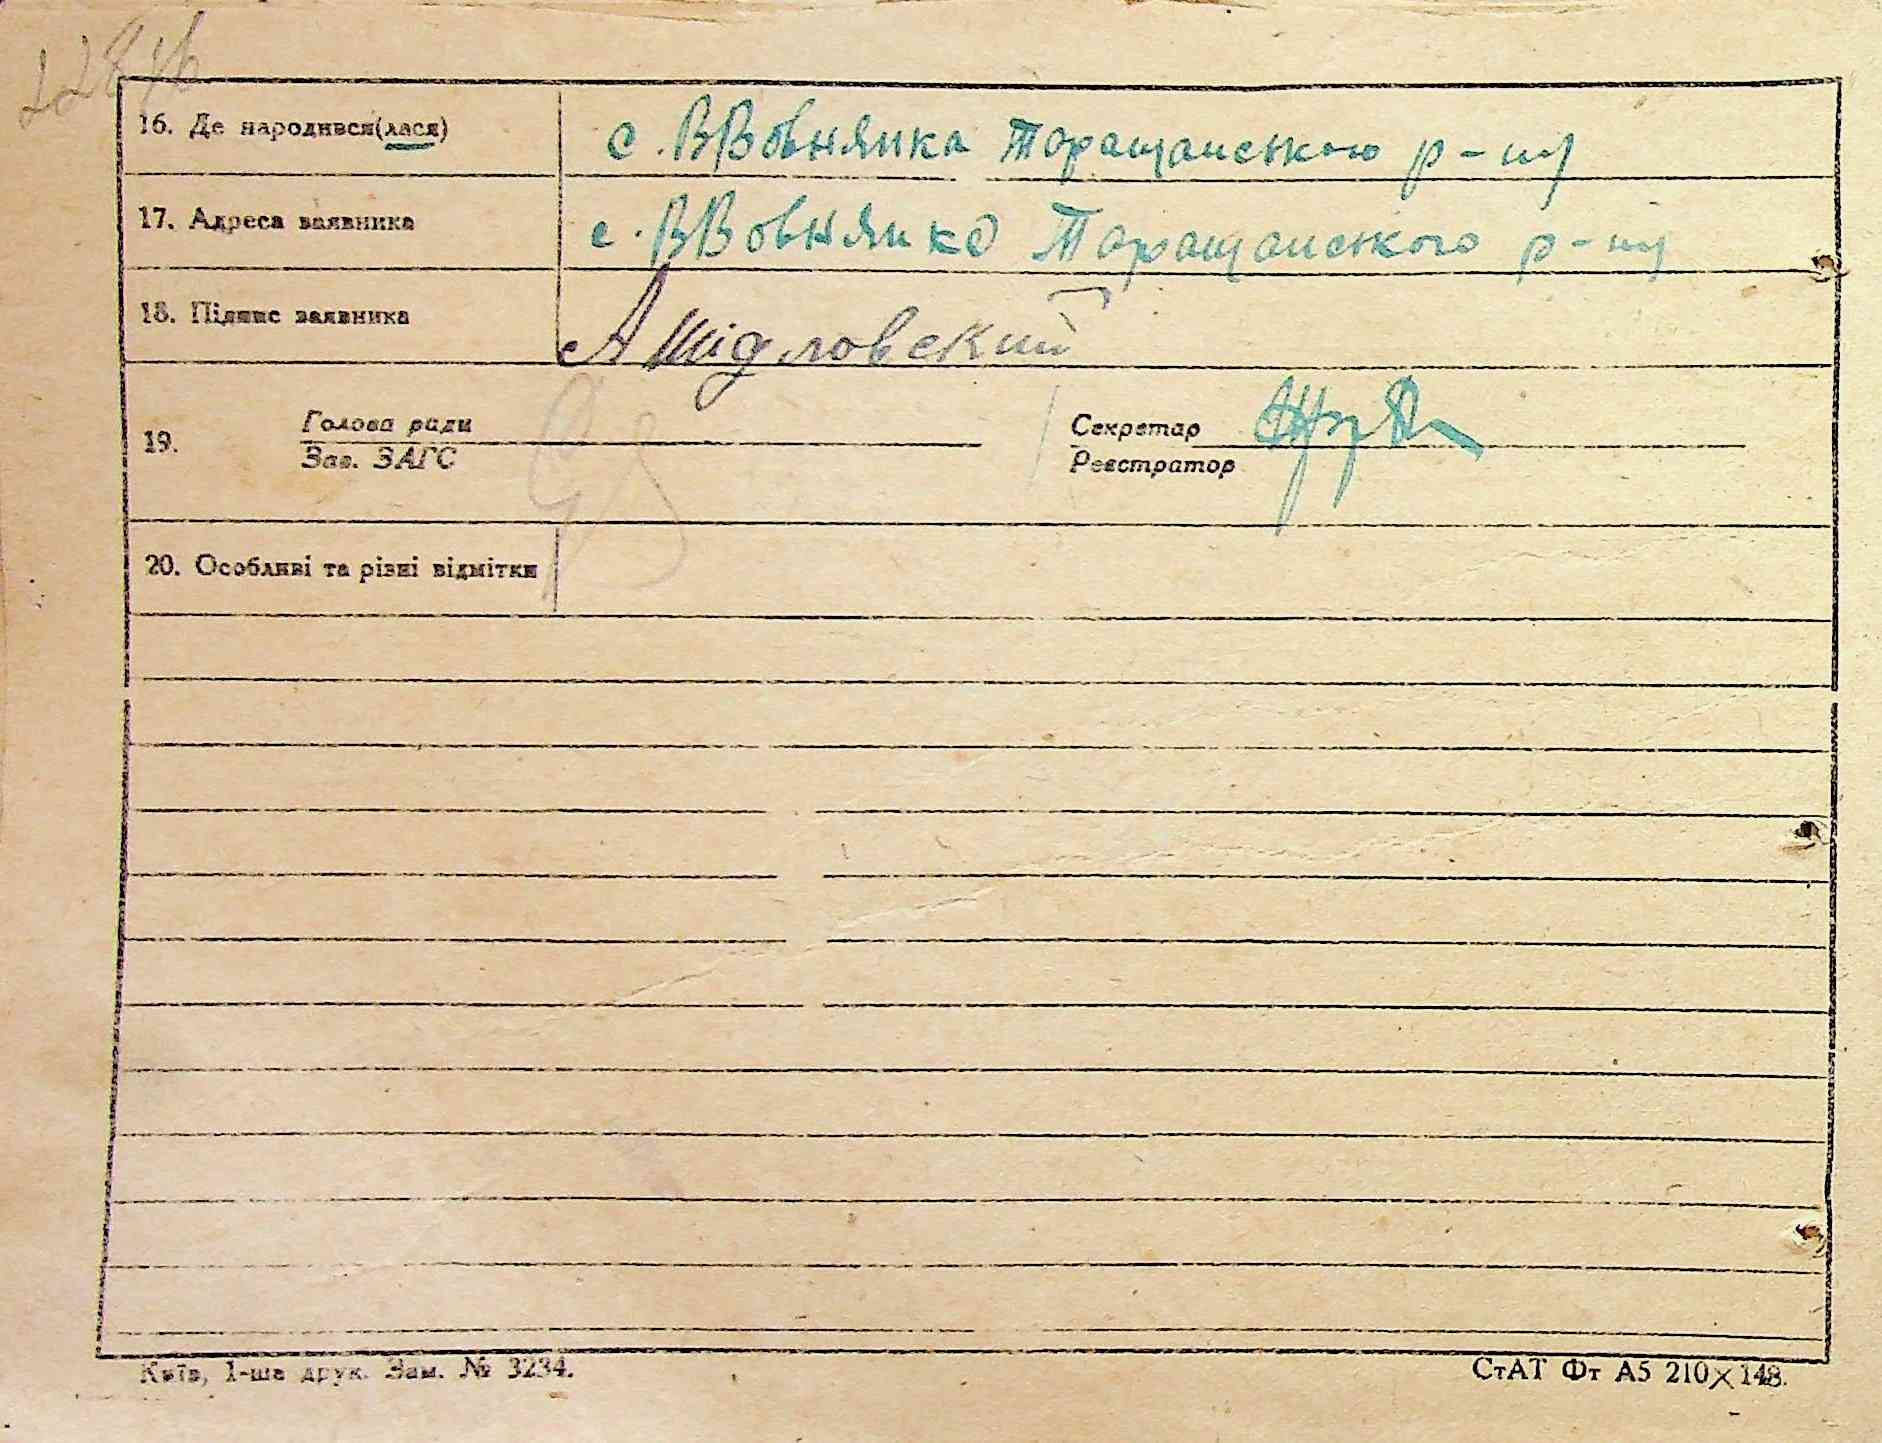 16. Де народився(лася) с. ВВовнянка Таращанського р-ну
17. Адреса заявника с. ВВовнянка Таращанського р-ну
18. Підпис заявника А Шідловский
19. Голова ради Секретар
Зав. ЗАГС Реєстратор
20. Особливі та різні відмітки
Київ, 1-ша друк. Зам. № 3234. СтАТ Фт А5 210×148.